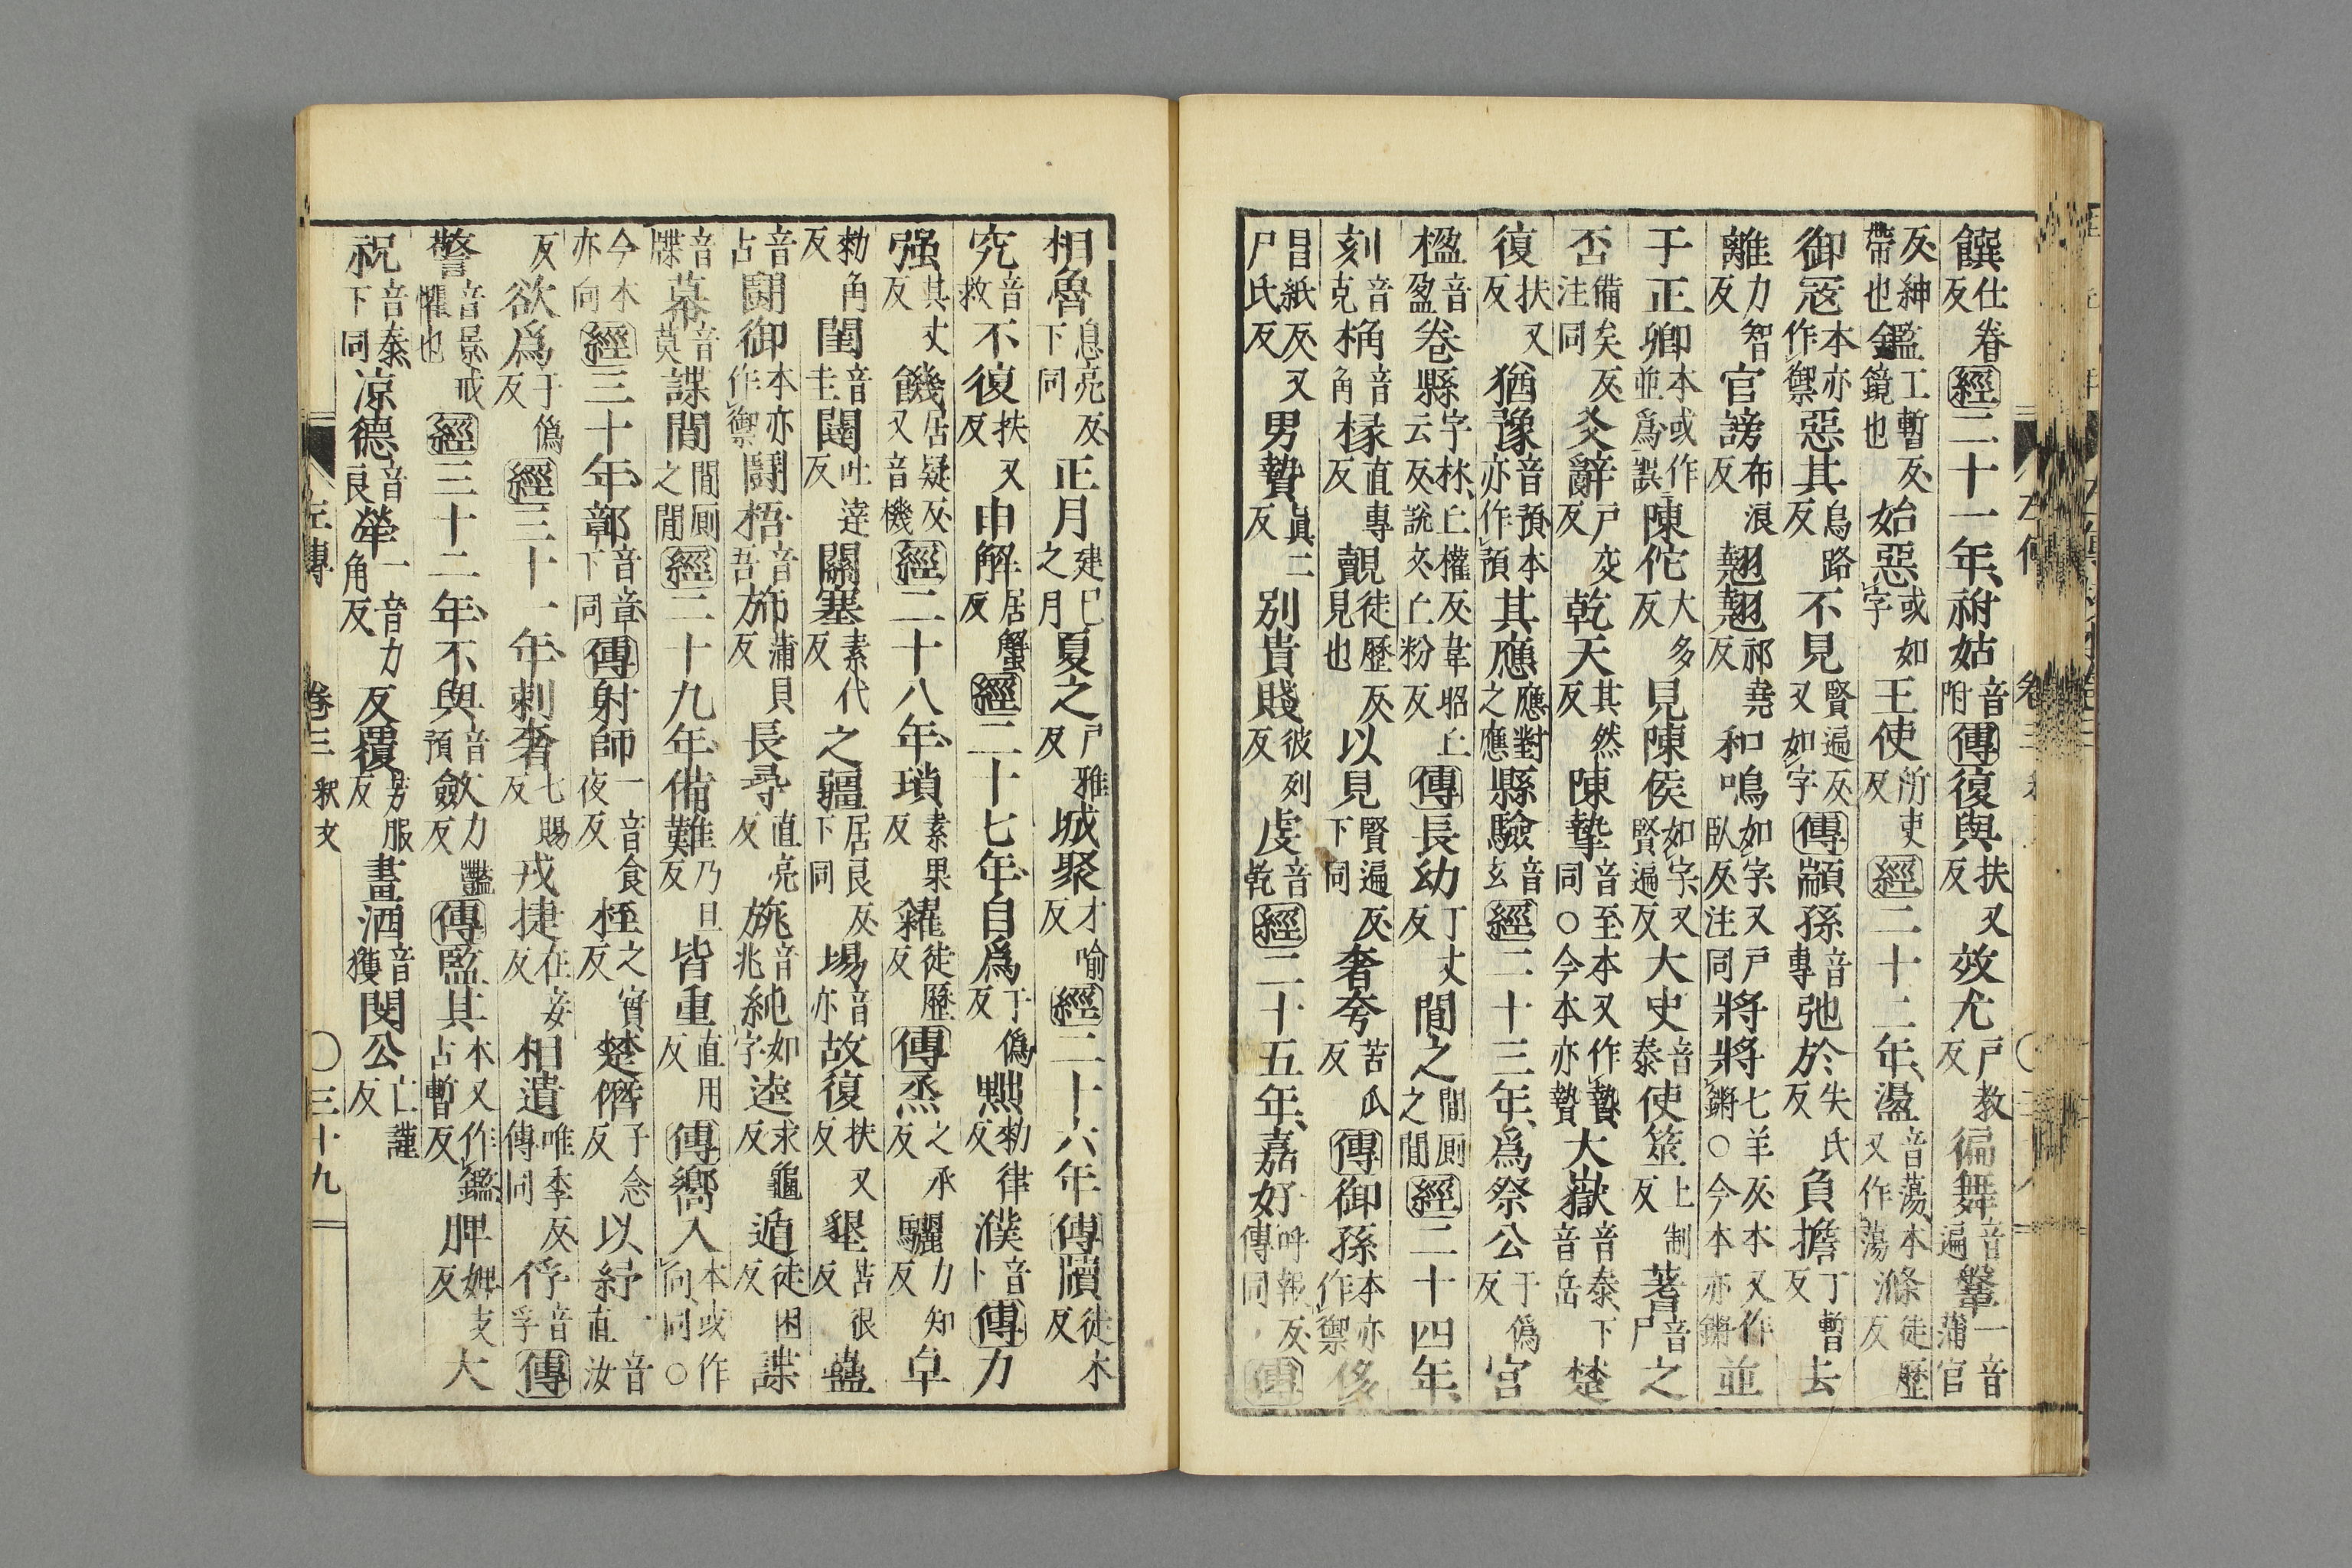 饌仕眷反經二十一年、祔姑音附傳復與扶又反效尤戶教反徧舞音遍鞶一音蒲官
反紳帶也鑑工暫反、鏡也始惡或如字王使所吏反經二十二年、瀊音蕩、本又作蕩滌徒歷反
御寇本亦作禦惡其烏路反不見賢遍反又如字傳顓孫音專弛於失氏反負擔丁暫反去
離力智反官謗布浪反翹翹祁堯反和鳴如字、又戶臥反注同將將七羊反本又作鏘○今本亦鏘並
于正卿本或作並爲誤陳佗大多反見陳侯如字、又賢遍反大史音泰使筮上制反蓍音尸之
否備矣反注同爻辭戶交反乾天其然反陳摯音至本又作贄同○今本亦贄大嶽音泰、下音岳楚
復扶又反猶豫音預本亦作預其應應對之應縣驗音玄經二十三年、爲祭公于僞反宮
楹音盈卷縣字林、丘權反韋昭丘云反說文丘粉反傳長幼丁丈反間之間廁之間經二十四年、
刻音克桷音角椽直專反覿徒歷反見也以見賢遍反下同奢夸苦瓜反傳御孫本亦作禦侈
昌紙反又尸氏反男贄眞二反別貴賤彼列反虔音乾經二十五年、嘉好呼報反傳同傳
相魯息亮反下同正月建巳之月夏之戶雅反城聚才喻反經二十六年傳牘徒木反
究音救不復扶又反申解居蟹反經二十七年、自爲于僞反黜勑律反濮音卜傳力
强其丈反饑居疑反又音機經二十八年、瑣素果反糴徒歷反傳烝之承反驪力知反卓
勑角反閨音圭闥吐達反關塞素代反之疆居良反下同埸音亦故復扶又反墾苦很反蠱
音古鬪御本亦作禦鬪梧音吾旆蒲貝反長尋直亮反旐音兆純如字逵求龜反遁徒困反諜
音牒幕音莫諜間間廁之間經二十九年、備難乃旦反皆重直用反傳嚮入本或作向、同○
今本亦向經三十年、鄣音章下同傳射師一音食夜反桎之實反楚僭子念反以紓一音直汝
反欲爲于僞反經三十一年、刺奢七賜反戎捷在妾反相遺唯季反傳同俘音孚傳
警音景、戒懼也經三十二年、不與音預斂力豔反傳監其本又作鑑古暫反脾婢支反大
祝音泰下同凉德音良犖一音力角反反覆芳服反畫酒音獲閔公亡謹反
左傳 卷三 釈文 〇三十九